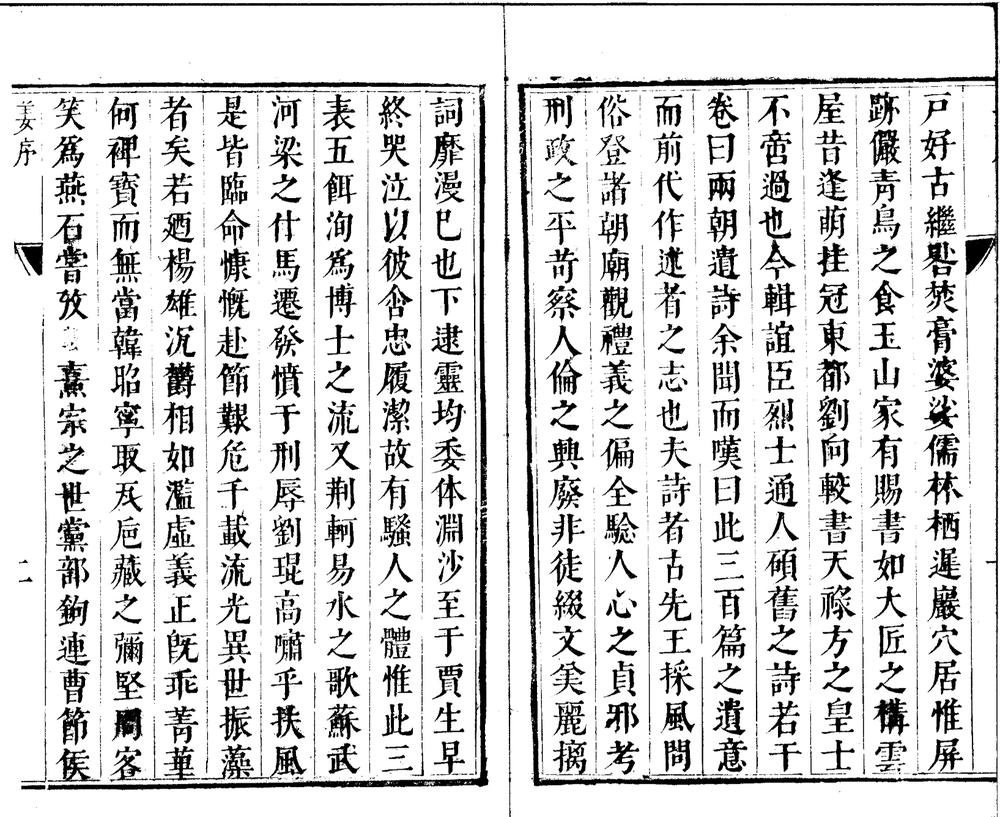 戸好古繼晷焚膏婆娑儒林栖遲巖穴居惟屏
跡儼青鳥之食玉山家有賜書如大匠之構雲
屋昔逢萌挂冠東都劉向較書天祿方之皇士
不啻過也今輯誼臣烈士通人碩舊之詩若干
卷曰兩朝遺詩余聞而嘆曰此三百篇之遺意
而前代作述者之志也夫詩者古先王採風問
俗登諸朝廟觀禮義之偏全驗人心之貞邪考
刑政之平苛察人倫之興廢非徒綴文美麗摛
詞靡漫已也下逮靈均委体淵沙至于賈生早
終哭泣以彼含忠履潔故有騷人之體惟此三
表五餌洵爲博士之流又荆軻易水之歌蘇武
河梁之什馬遷發憤于刑辱劉琨高嘯乎扶風
是皆臨命慷慨赴節艱危千載流光異世振藻
者矣若廼楊雄沉鬱相如濫虛義正旣乖菁華
何裨寶而無當韓昭寧取瓦巵藏之彌堅周客
笑爲燕石嘗攷 熹宗之世黨部鉤連曹節侯
姜序
二